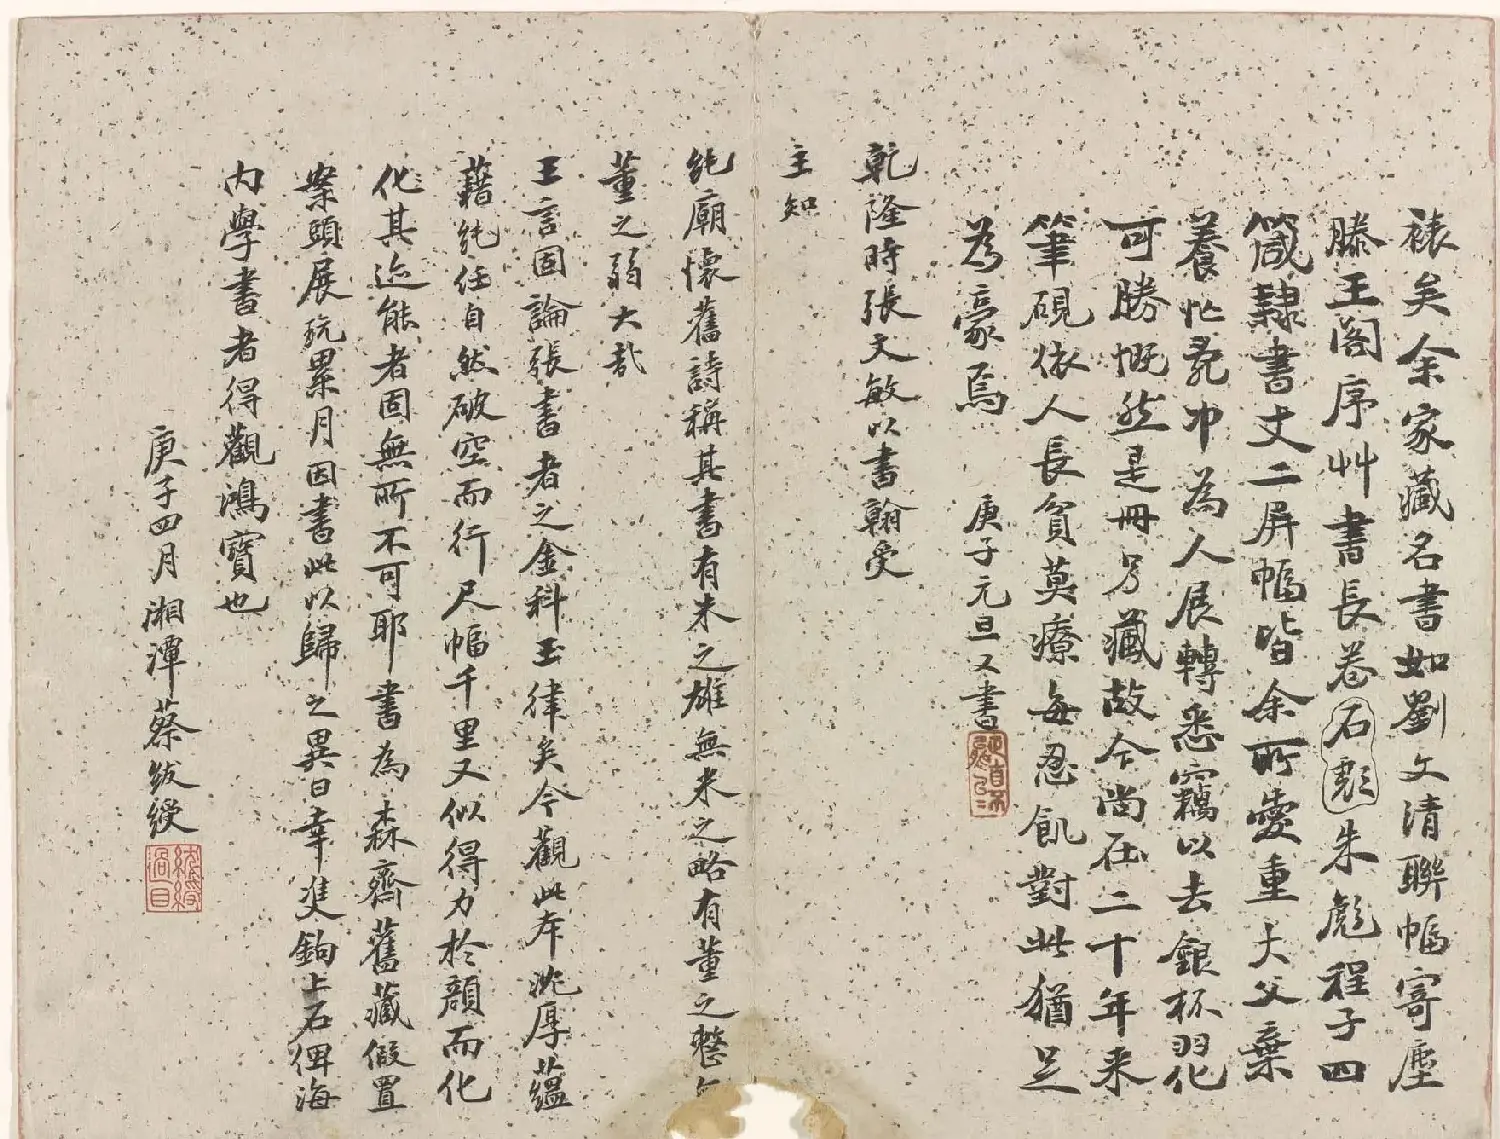 裱矣余家藏名書如劉文清聯幅寄塵
滕王閣序艸書長卷石彪朱彪程子四
箴隸書丈二屏幅皆余所愛重大父棄
養忙亂中為人展轉悉竊以去銀杯羽化
可勝慨然是冊另藏故今尚在二十年来
筆硯依人長貧莫療每忍飢對此猶足
為豪焉
庚子元旦又書
乾隆時張文敏以書翰受
主知
純廟懷舊詩稱其書有米之雄無米之略有董之整無
董之弱大哉
王言固論張書者之金科玉律矣今觀此本沈厚蘊
藉純任自然破空而行尺幅千里又似得力於顔而化
化其迹能者固無所不可耶書為森齋舊藏假置
案頭展玩累月因書此以歸之異日幸雙鉤上石俾海
內學書者得觀鴻寶也
庚子四月湘潭蔡紱綬